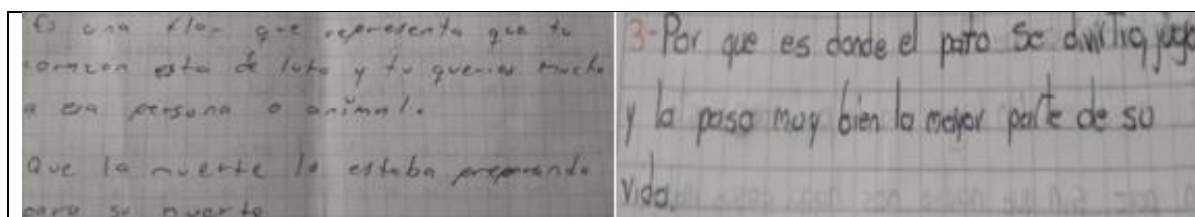 Es una flor que representa que tu
corazon esta de luto y tu querias mucho
a esa persona o animal.
Que la muerte lo estaba preparando
para su muerte
3-Por que es donde el pato se divirtio
y la paso muy bien la mayor parte de su
vida.